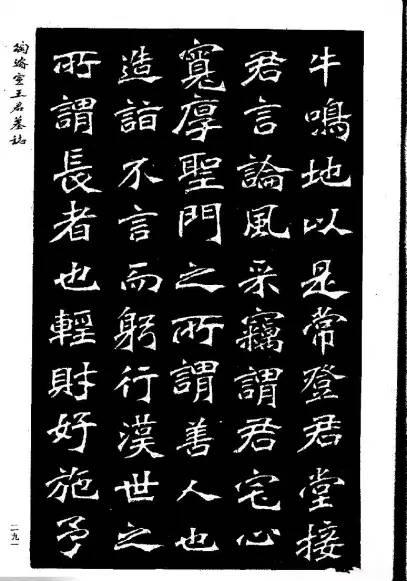 牛鳴地以是常登君堂接
君言論風采竊謂君宅心
寬厚聖門之所謂善人也
造詣不言而躬行漢世之
所謂長者也輕財好施予
陶濬宣王君墓誌
二九一